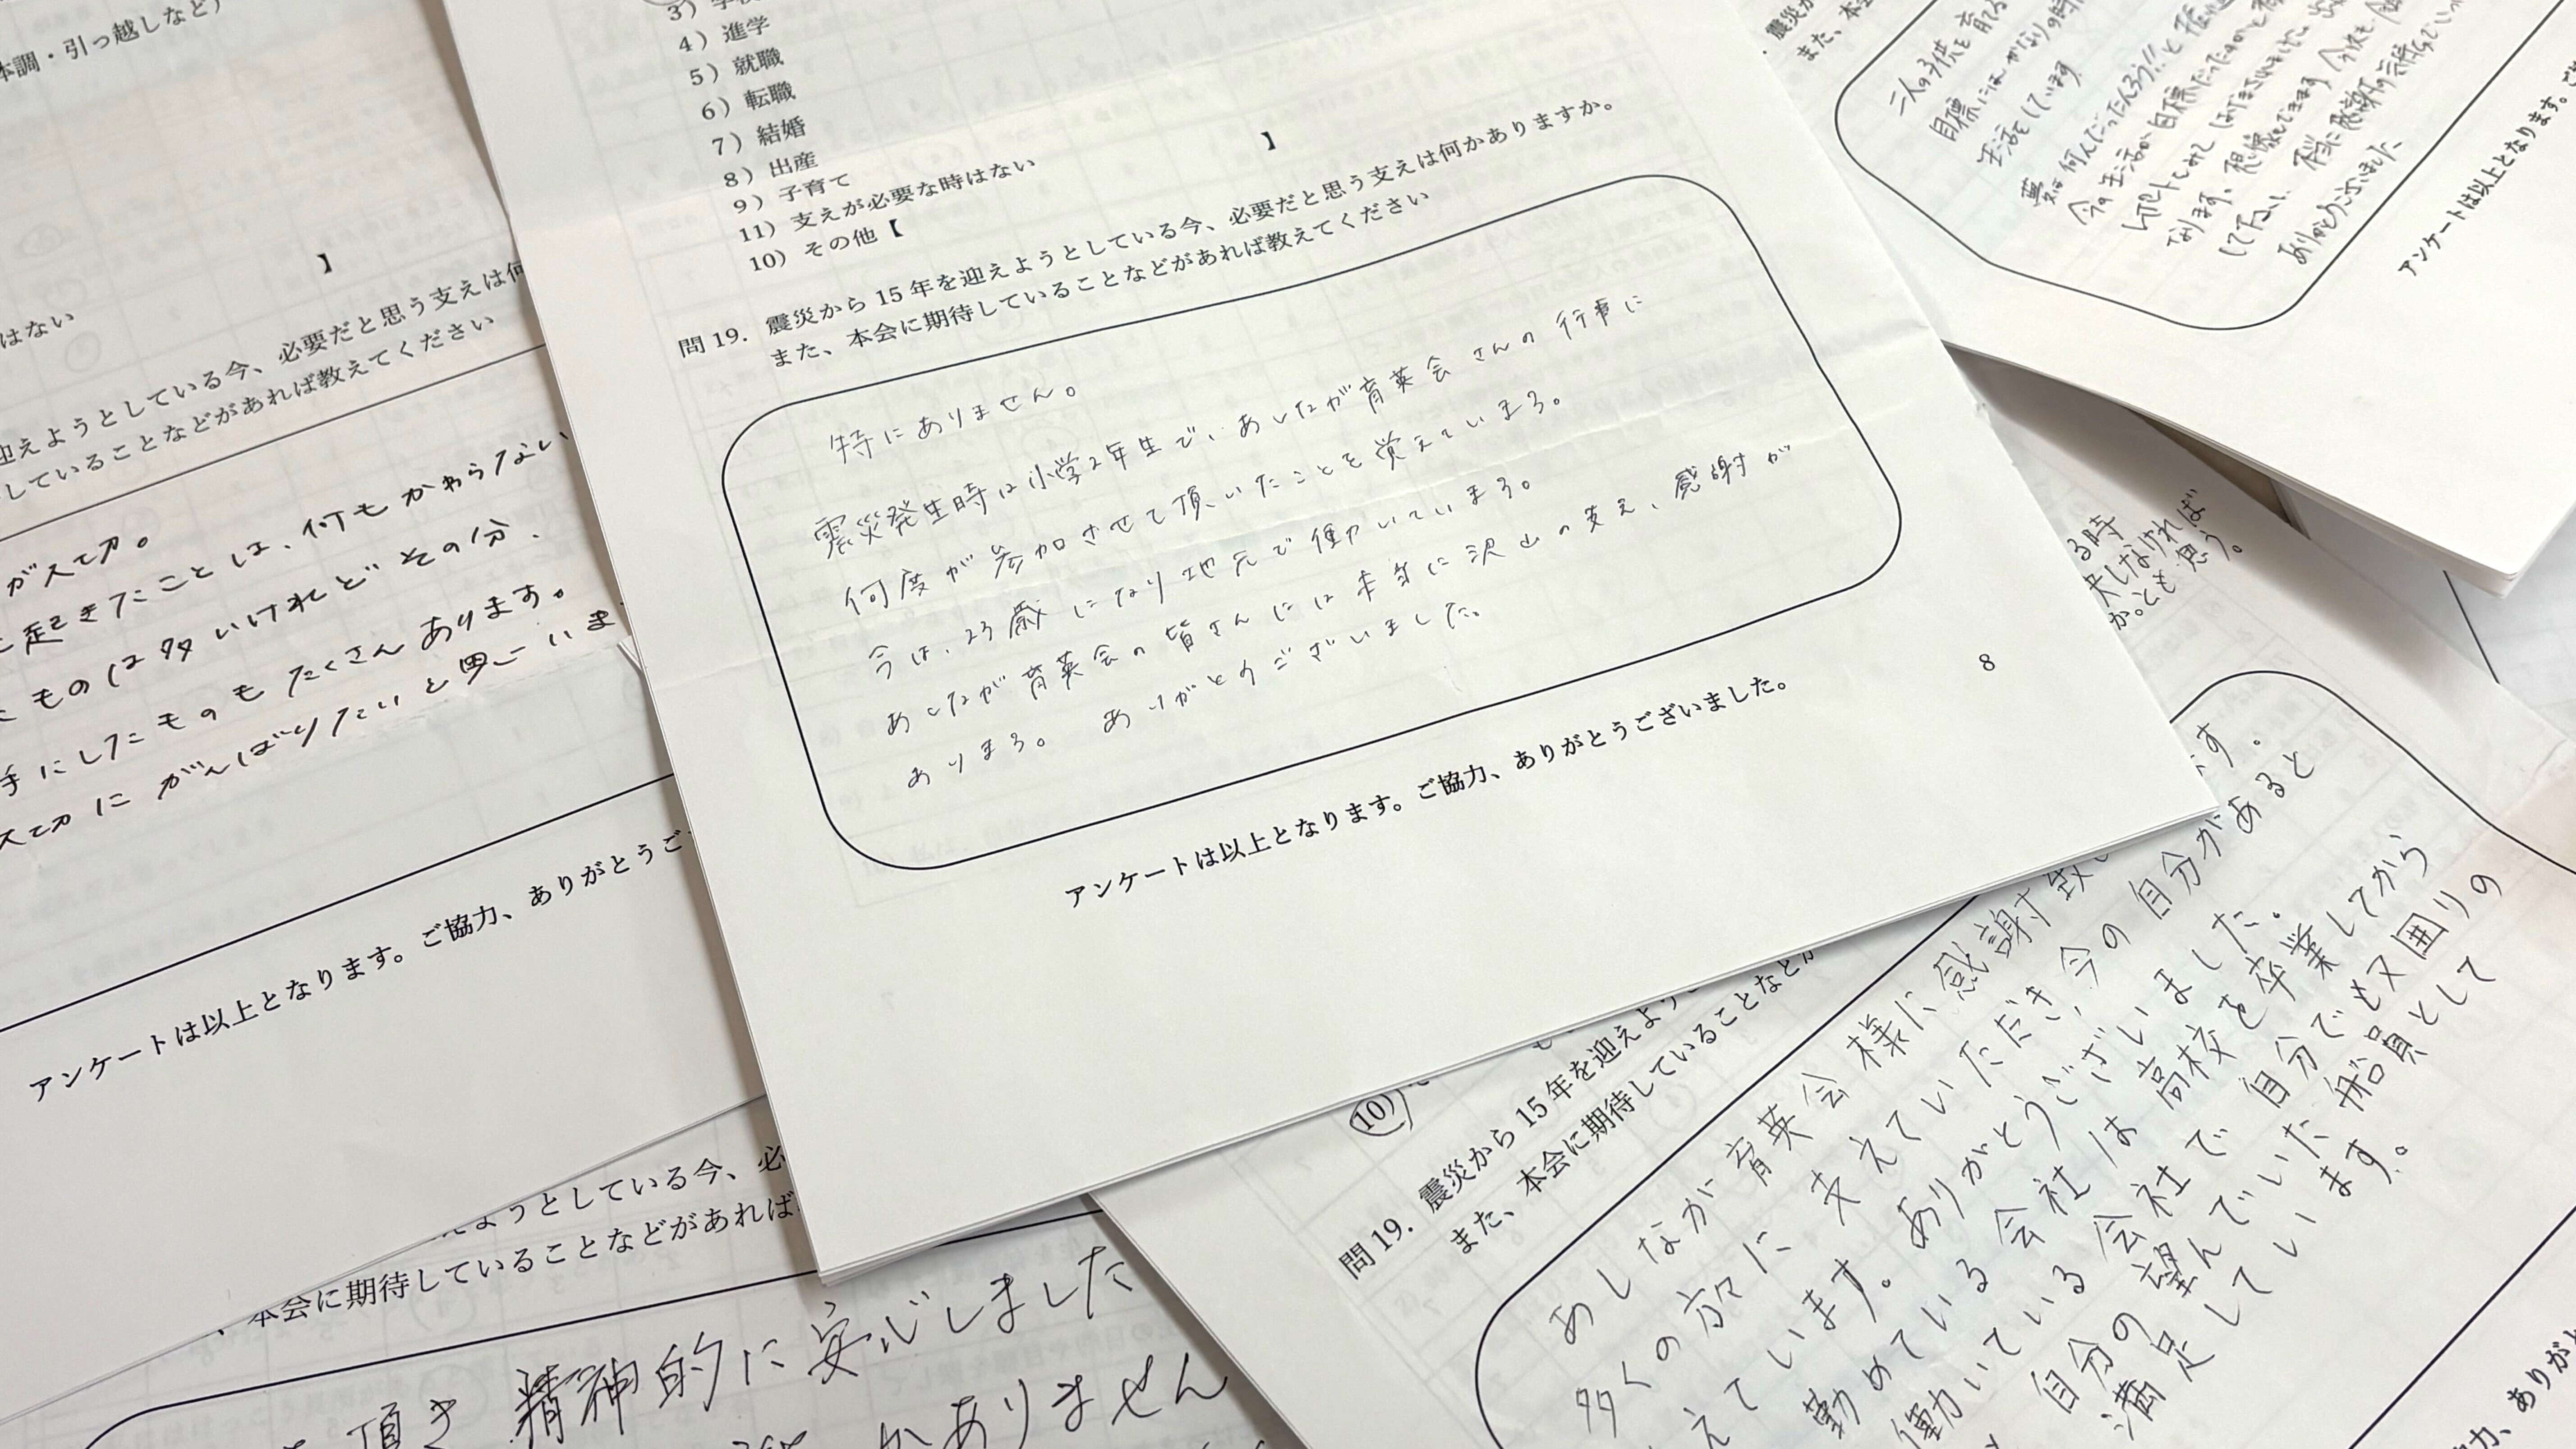 体調・引っ越しなど）
】
はない
迎えようとしている今、必要だと思う支えは何
していることなどがあれば教えてください
が大切。
起きたことは、何もかわらない
ものは多いけれどその分、
手にしたものもたくさんあります。
大切にがんばりたいと思いま
アンケートは以上となります。ご協力、ありがとうご
3）学校
4）進学
5）就職
6）転職
7）結婚
8）出産
9）子育て
11）支えが必要な時はない
10）その他【 】
問19．震災から15年を迎えようとしている今、必要だと思う支えは何かありますか。
また、本会に期待していることなどがあれば教えてください
特にありません。
震災発生時は小学2年生で、あしなが育英会さんの行事に
何度か参加させて頂いたことを覚えています。
今は、23歳になり地元で働いています。
あしなが育英会の皆さんには本当に沢山の支え、感謝が
あります。 ありがとうございました。
8
アンケートは以上となります。ご協力、ありがとうございました。
・震災が
また、本会
二人の子供を育てる
目標にはかなりの時
生活をしています。
夢は何んだったんだろう!!と
今の生活が目標だったのかと
なります。想像もできます
して下さい。本当に感謝の気持ちでい
ありがとうございました
アンケートは以上となります。ご
る時
夫しなければ
か。とも思う。
ようとしている今、必
、本会に期待していることなどがあれば
頂き精神的に安心しました
かありません
10）
問19．震災から15年を迎えよう
また、本会に期待していることなどが
ます。
あしなが育英会様に感謝致し
多くの方々に支えていただき、今の自分があると
えています。ありがとうございました。
勤めている会社は高校を卒業してから
働いている会社で自分でも又囲りの
自分の望んでいた船員として
満足しています。
力、ありが